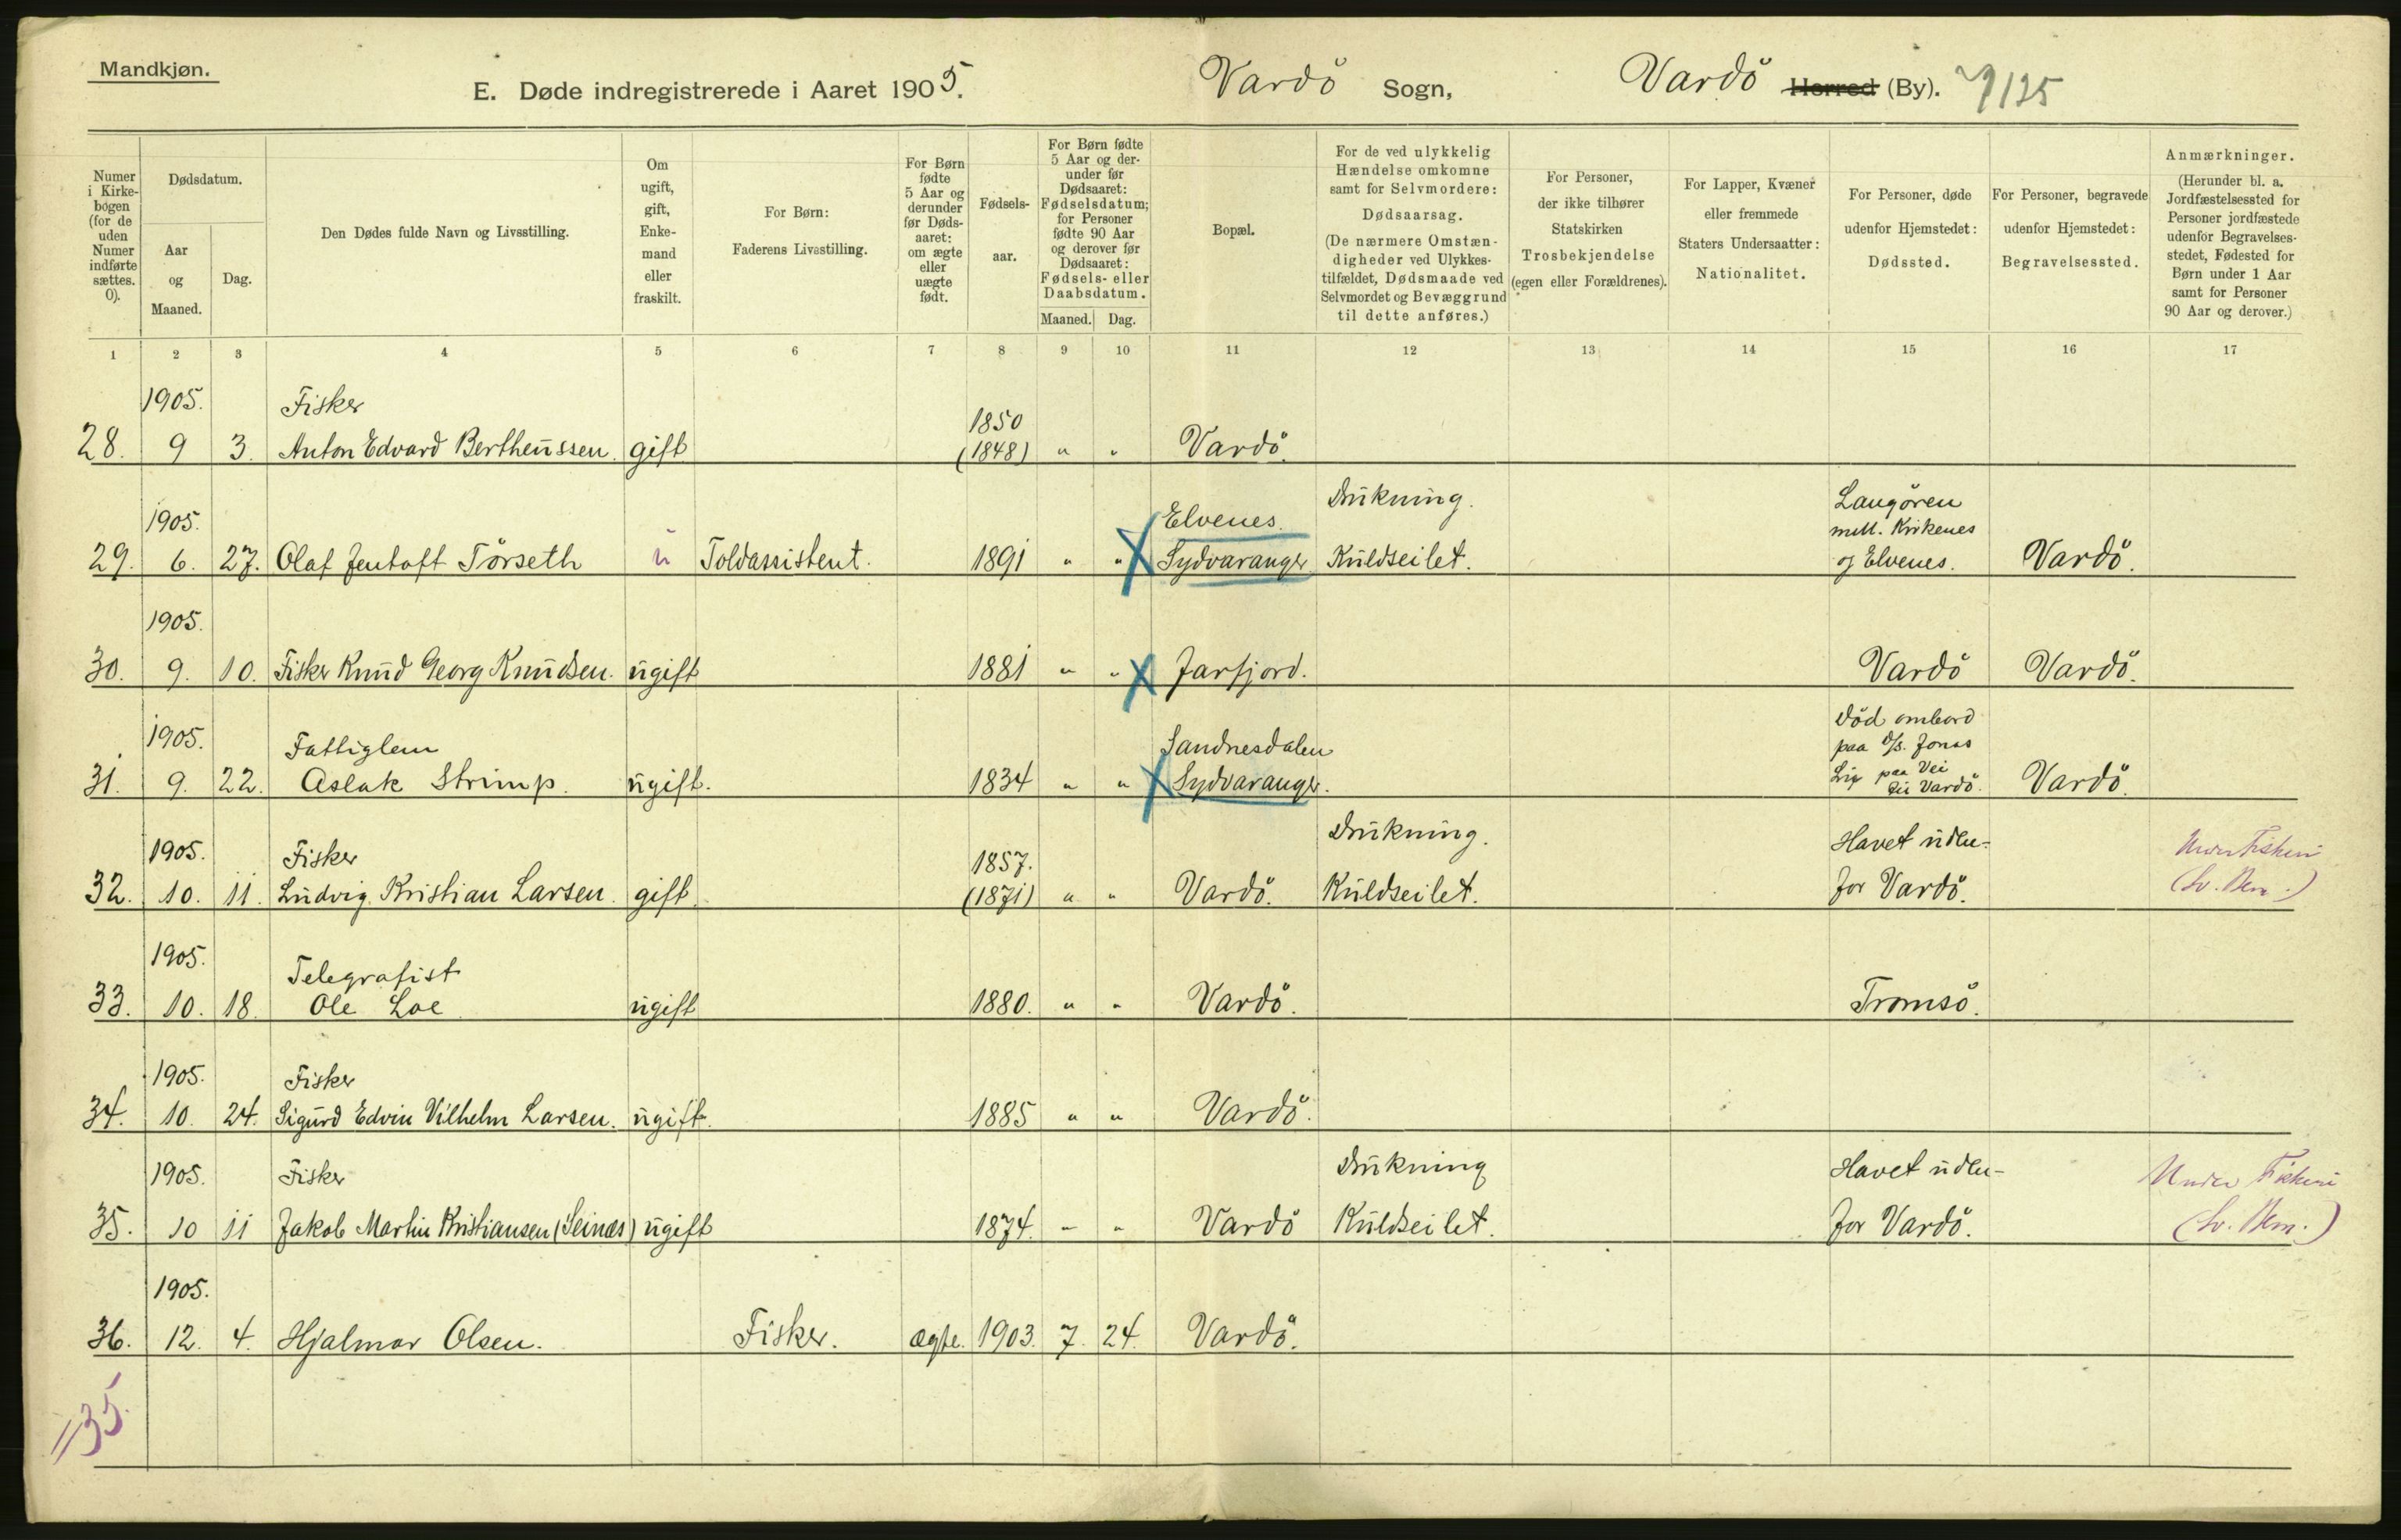 Mandkjøn.
E. Døde indregistrerede i Aaret 1905. Vardö Sogn, Vardö Herred (By). 9/125
Numer i Kirkebogen (for de uden Numer indførte sættes. 0).
Dødsdatum.
Aar og Maaned.
Dag.
Den Dødes fulde Navn og Livsstilling.
Om ugift, gift, Enkemand eller fraskilt.
For Børn: Faderens Livsstilling.
For Børn fødte 5 Aar og derunder før Dødsaaret: om ægte eller uægte født.
Fødselsaar.
For Børn fødte 5 Aar og derunder før Dødsaaret: Fødselsdatum; for Personer fødte 90 Aar og derover før Dødsaaret: Fødsels- eller Daabsdatum.
Maaned. Dag.
Bopæl.
For de ved ulykkelig Hændelse omkomne samt for Selvmordere: Dødsaarsag. (De nærmere Omstændigheder ved Ulykkestilfældet, Dødsmaade ved Selvmordet og Bevæggrund til dette anføres.)
For Personer, der ikke tilhører Statskirken Trosbekjendelse (egen eller Forældrenes).
For Lapper, Kvæner eller fremmede Staters Undersaatter: Nationalitet.
For Personer, døde udenfor Hjemstedet: Dødssted.
For Personer, begravede udenfor Hjemstedet: Begravelsessted.
Anmærkninger. (Herunder bl. a. Jordfæstelsessted for Personer jordfæstede udenfor Begravelsesstedet, Fødested for Børn under 1 Aar samt for Personer 90 Aar og derover.)
1 2 3 4 5 6 7 8 9 10 11 12 13 14 15 16 17
1905. Fisker 1850
28. 9 3. Anton Edvard Bertheussen. gift (1848) " " Vardö.
1905. Elvenes. Drukning. Langören mell. Kirkenes
29. 6. 27. Olaf Jentoft Törseth u Toldassistent. 1891 " " Sydvaranger Kuldseilet. og Elvenes. Vardö.
1905.
30. 9. 10. Fisker Knud Georg Knudsen. ugift 1881 " " Jarfjord. Vardö Vardö.
1905. Fattiglem Sandnesdalen Död ombord paa D/S. Jonas
31. 9. 22. Aslak Strimp. ugift. 1834 " " Sydvaranger. Lig paa Vei til Vardö. Vardö.
1905. Fisker 1857. Drukning. Havet uden- Under Fiskeri
32. 10. 11. Ludvig Kristian Larsen. gift. (1871) " " Vardö. Kuldseilet. for Vardö.
1905. Telegrafist
33. 10. 18. Ole Loe. ugift 1880. " " Vardö. Tromsö.
1905. Fisker
34. 10. 24. Sigurd Edvin Vilhelm Larsen. ugift. 1885 " " Vardö.
1905. Fisker Drukning Havet uden- Under Fiskeri
35. 10 11 Jakob Martin Kristiansen (Seinæs) ugift 1874. " " Vardö Kuldseilet. for Vardö.
1905.
36. 12. 4. Hjalmar Olsen. Fisker. ægte. 1903. 7. 24. Vardö.
35.